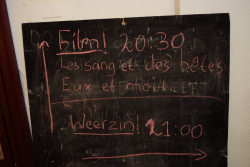 20:30
Le sang et des bêtes
Eux et moi
Weerzin! 21:00